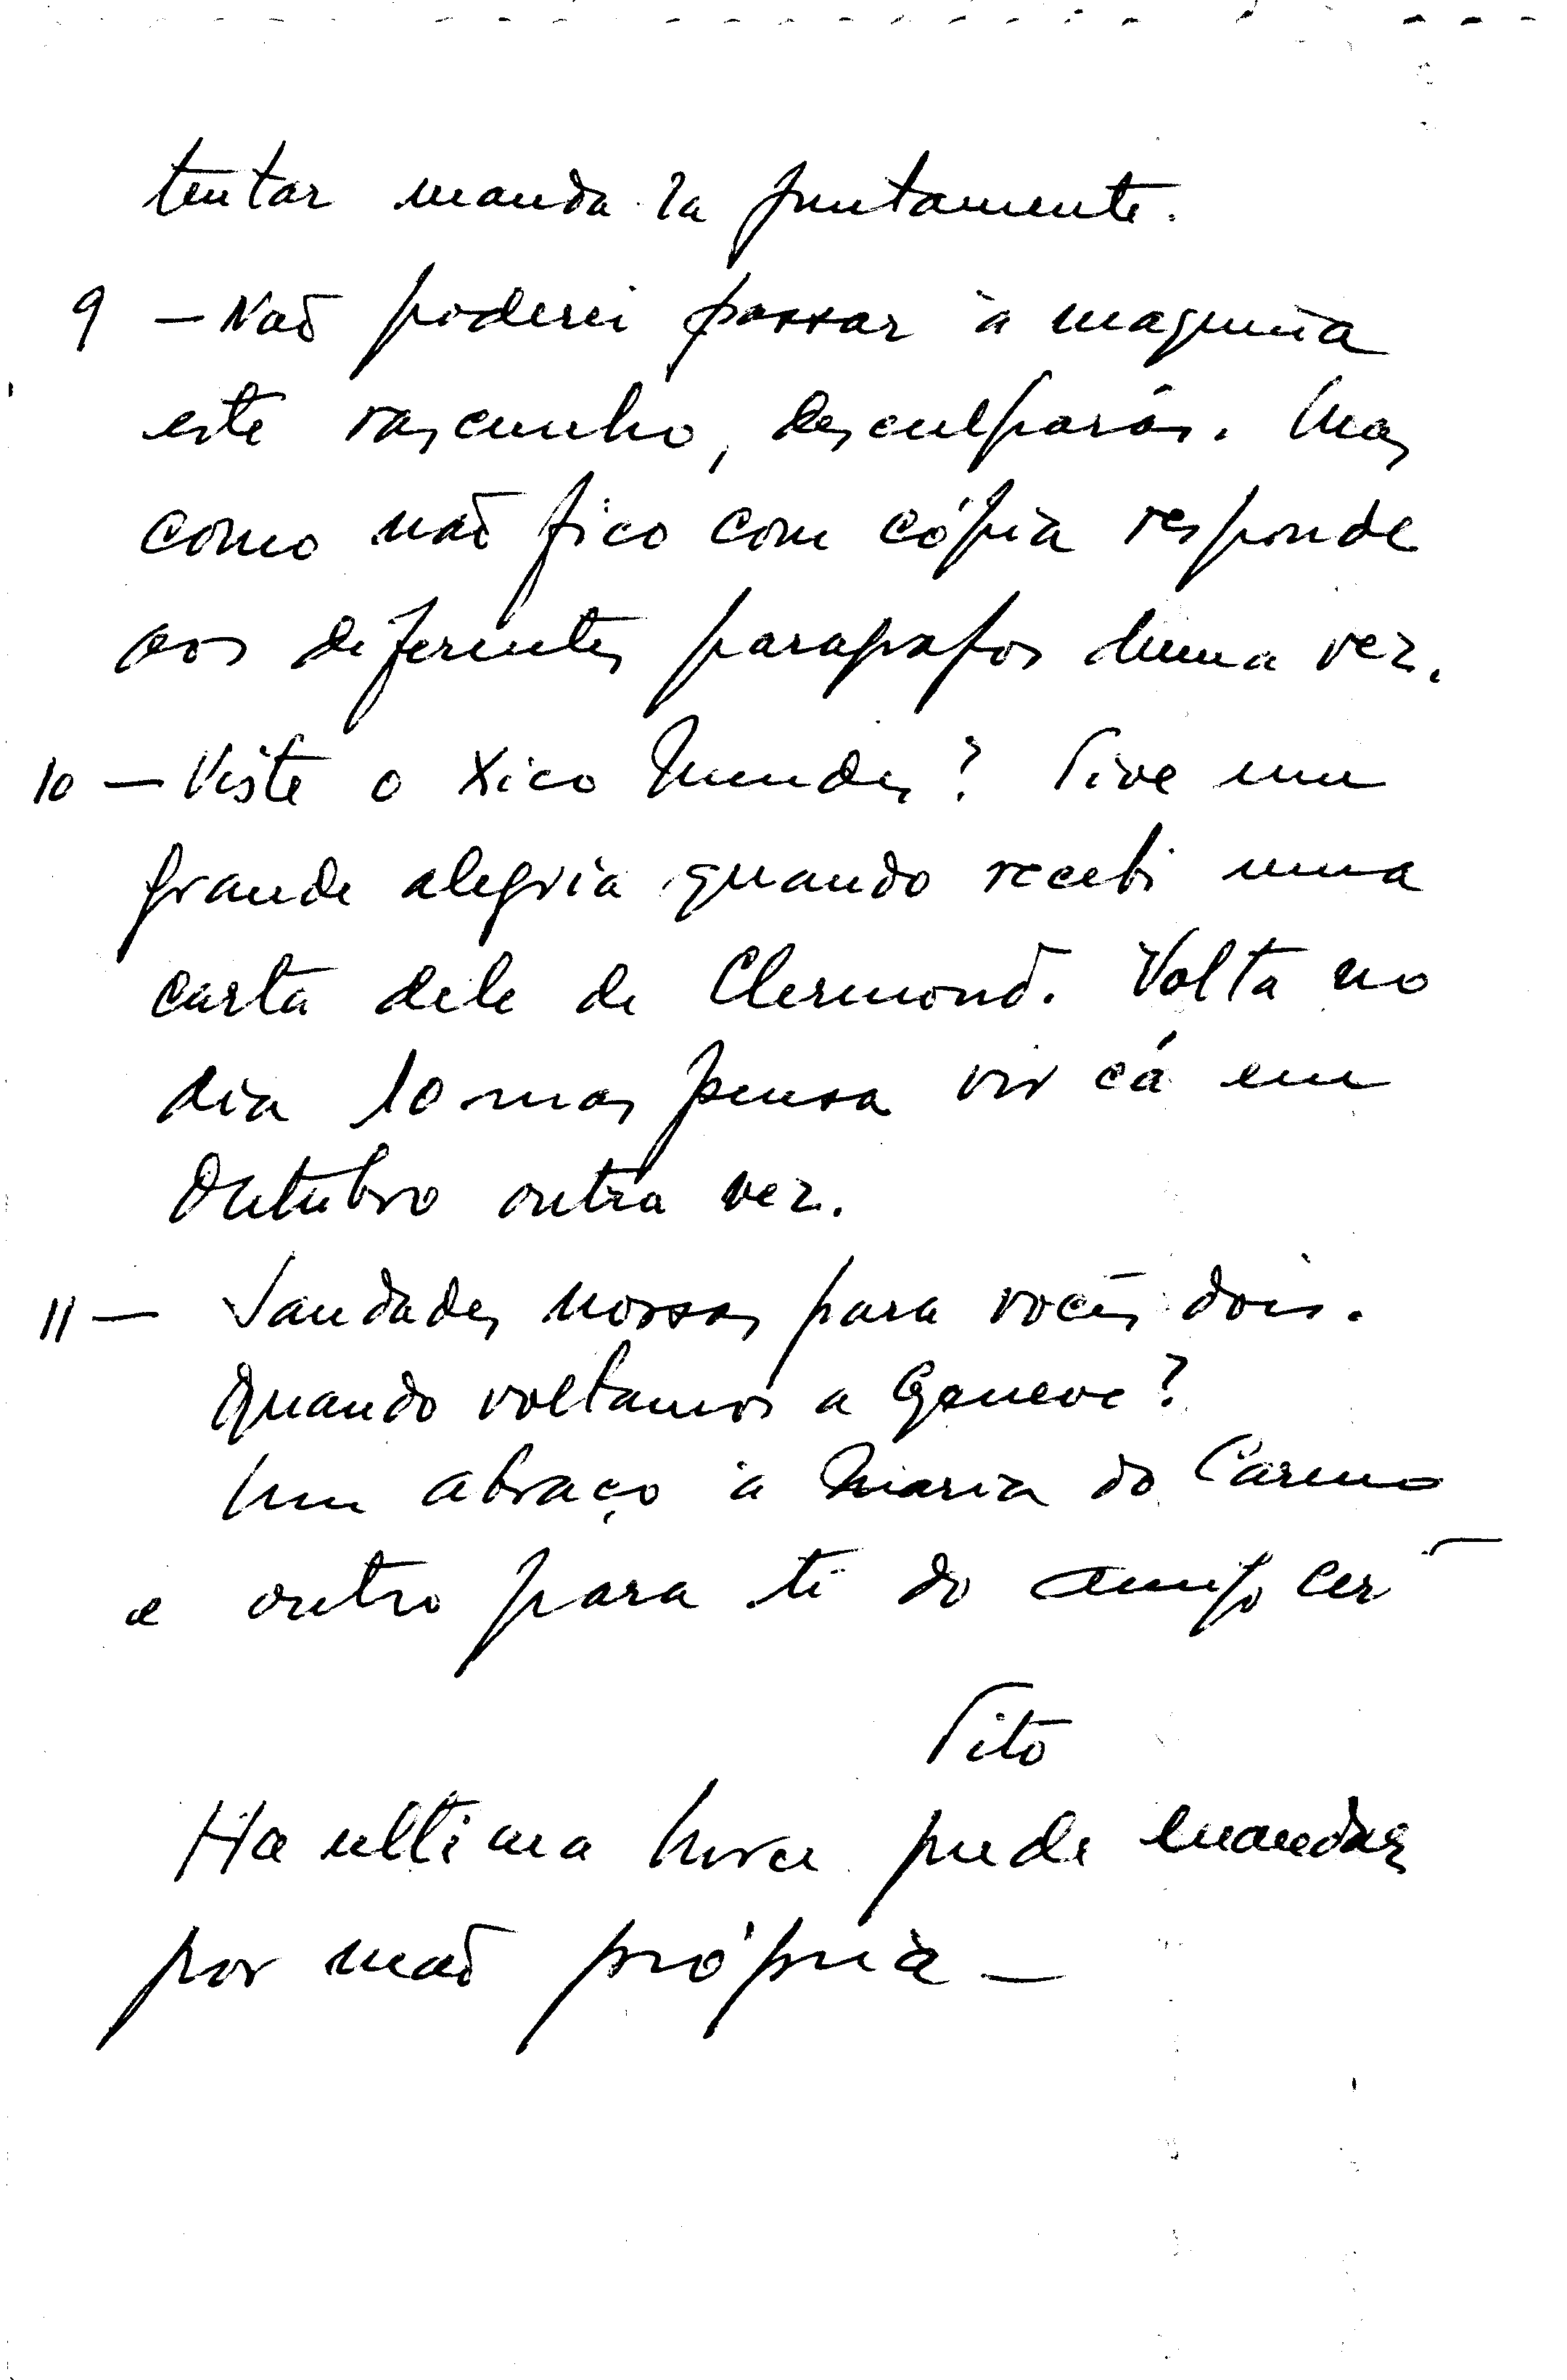 tentar manda-la juntamente.
9 — Não poderei passar à maquina
este rascunho, desculparás. Mas
como não fico com cópia responde
aos diferentes paragrafos duma vez.
10 — Viste o Xico Mendes? Tive um
grande alegria quando recebi uma
carta dele de Clermond. Volta no
dia 10 mas pensa vir cá em
Outubro outra vez.
11 — Saudades nossas para vocês dois.
Quando voltamos a Geneve?
Um abraço à Maria do Carmo
e outro para ti do amigo certo
Tito
Ha ultima hora pude mandar
por mão própria —